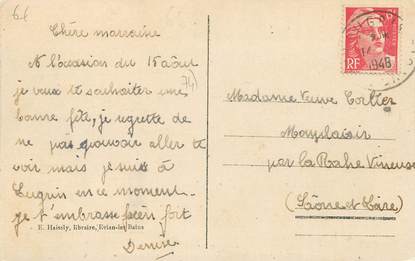 Chère marraine
A l'occasion du 15 août
je veux te souhaiter une
bonne fête, je regrette de
ne pas pouvoir aller te
voir mais je suis à
Lugrin en ce moment.
je t'embrasse bien fort
Denise
E. Haissly, libraire, Evian-les-Bains
RF
1948
Madame Veuve
par la Roche Vineuse
(Saône et Loire)